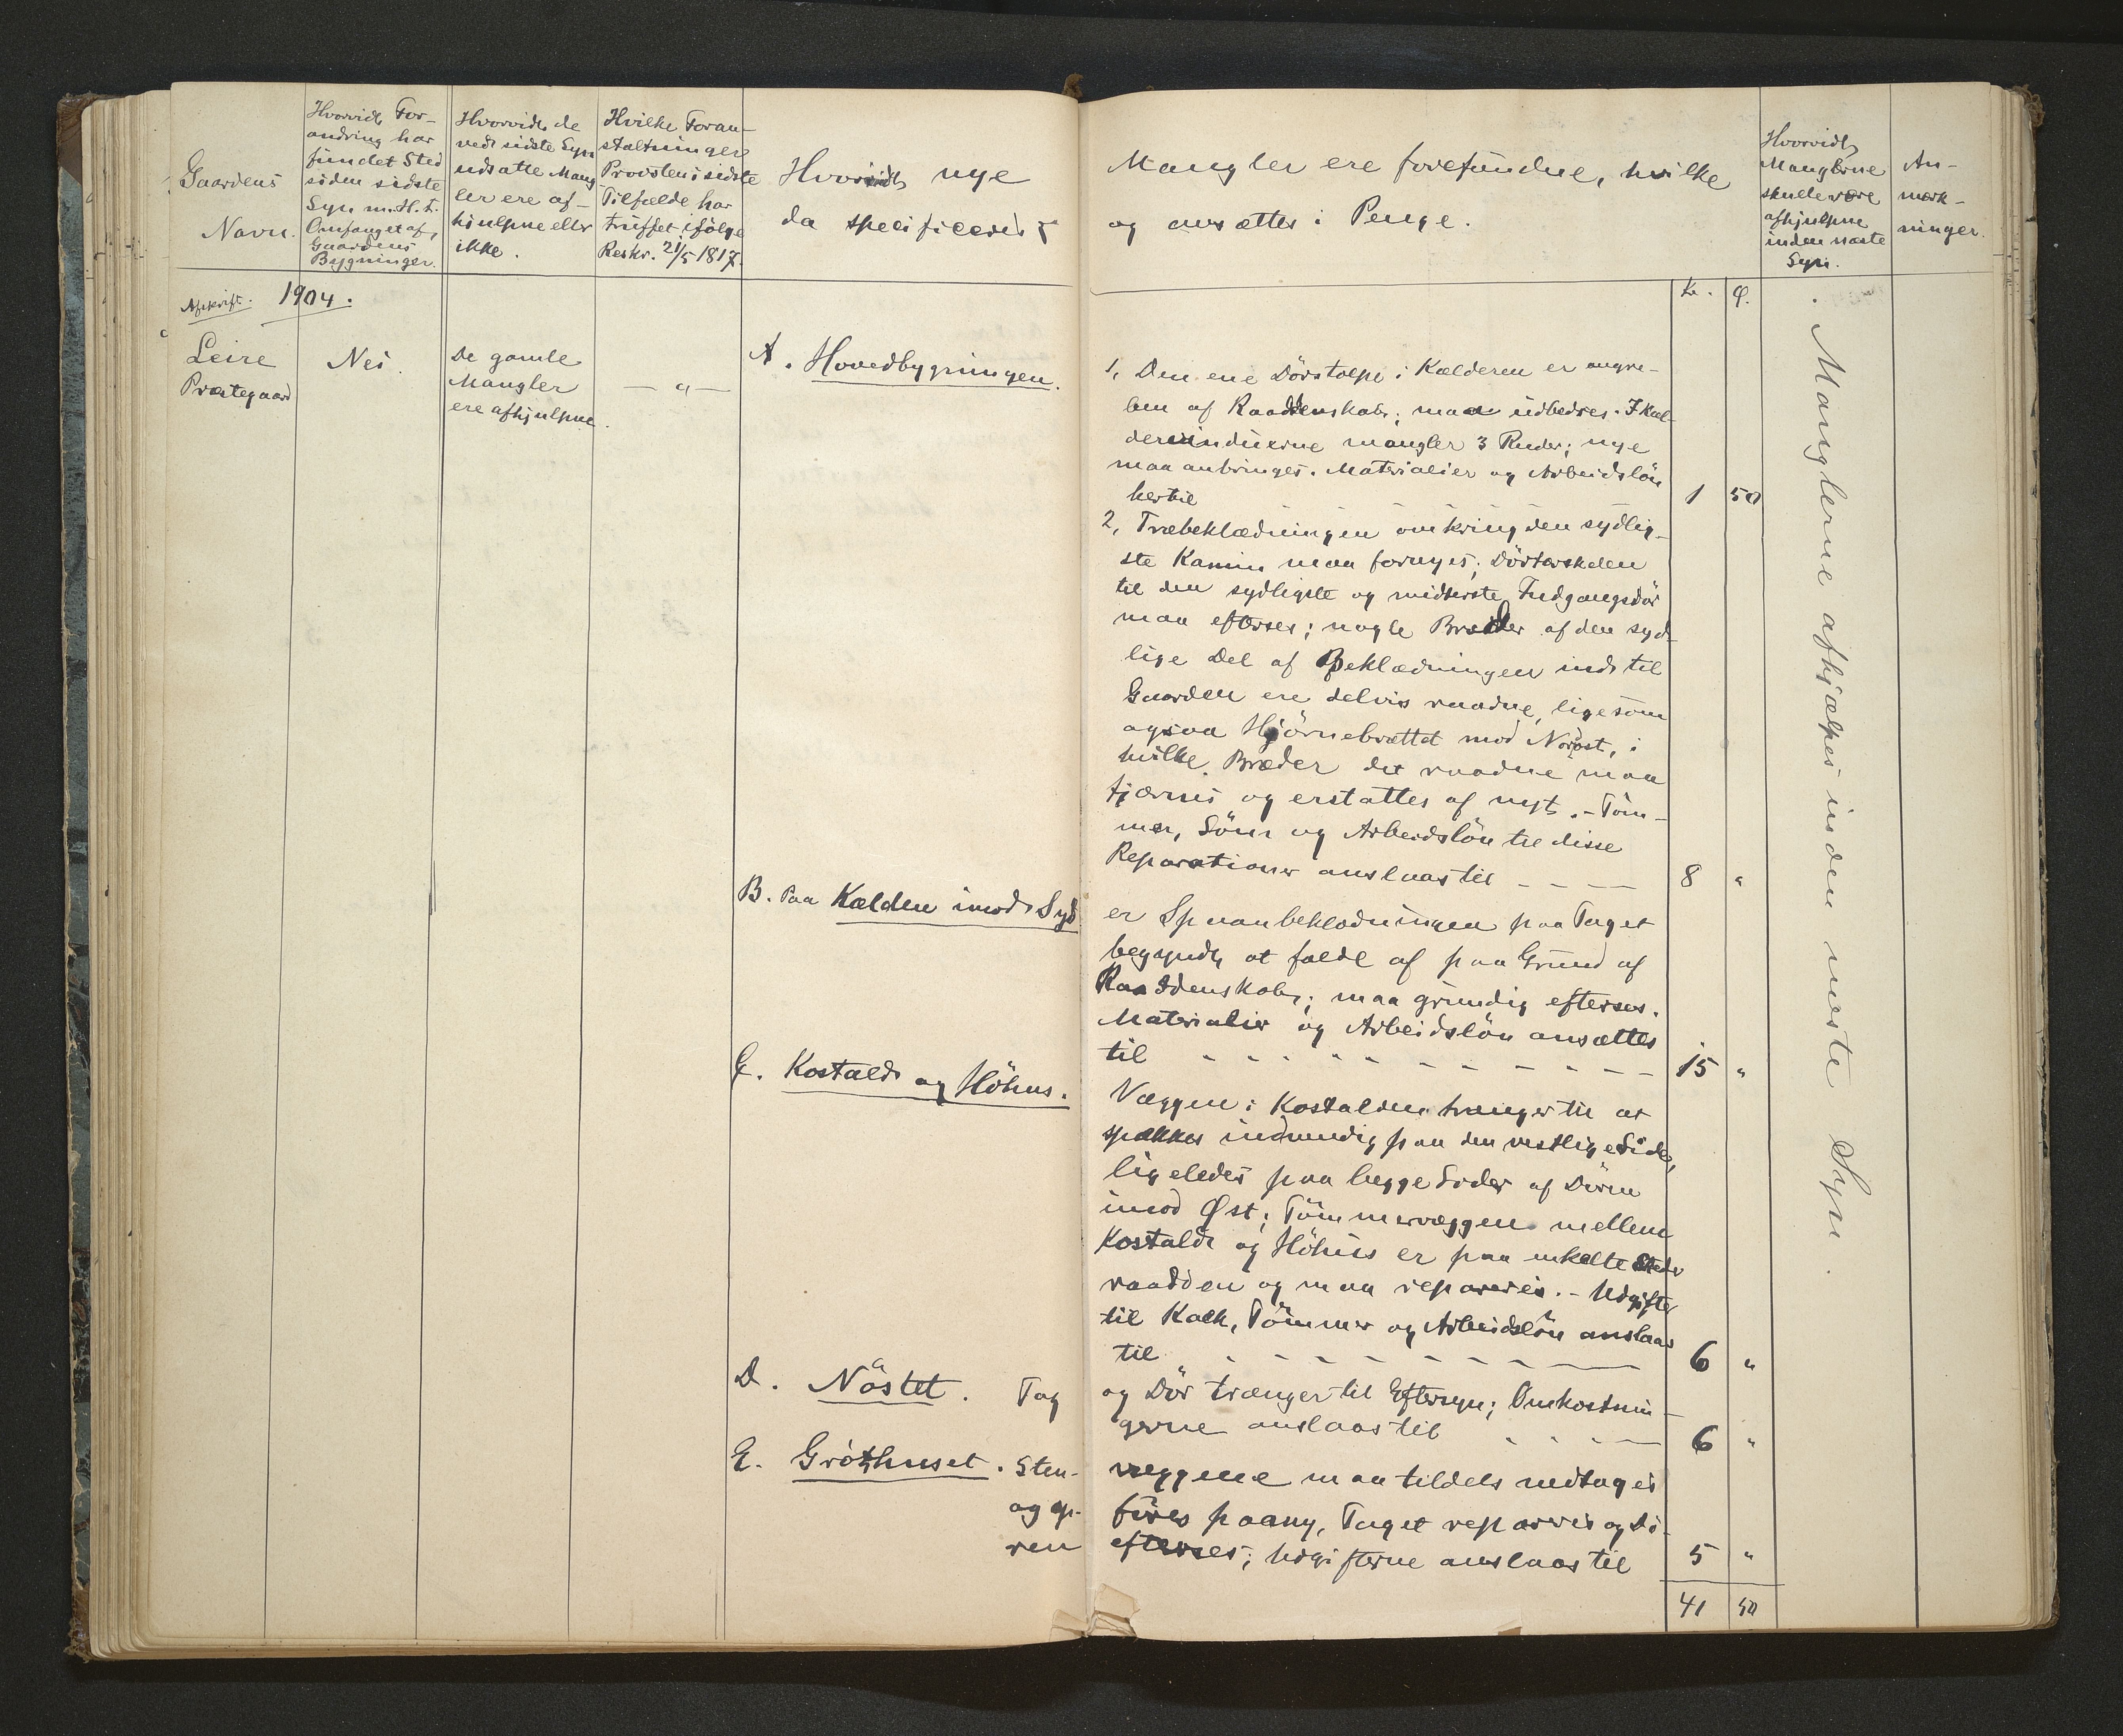 Gaardens
Navn.
Hvorvidt For-
andring har
fundet Sted
siden sidste
Syn m.H.t.
Omfanget af
Gaardens
Bygninger.
Hvorvidt de
ved sidste Syn
udsatte Mang
ler ere af-
hjulpne eller
ikke.
Hvilke Foran-
staltninger
Provsten i sidste
Tilfælde har
truffet ifölge
Reskr. 21/5 1817.
Hvorvidt nye
da specificeres
Mangler ere forefundne, hvilke
og ansættes i Penge.
Hvorvidt
Manglerne
skulle være
afhjulpne
inden næste
Syn.
An-
mærk-
ninger.
Afskrift. 1904.
Kr. Ø.
Leire
Præstegaard
Nei.
De gamle
Mangler
ere afhjulpne.
— " —
A. Hovedbygningen.
1, Den ene Dörstolpe i Kælderen er angre-
ben af Raaddenskab; maa udbedres. I Kæl-
dervinduerne mangler 3 Ruder; nye
maa anbringes. Materialier og Arbeidslön
hertil 1 50
2, Træbeklædningen omkring den sydlig-
ste Kamin maa fornyes; Dörterskelen
til den sydligste og midterste Indgangsdör
maa efterses; nogle Bræder af den syd-
lige Del af Beklædningen ind til
Gaarden ere delvis raadne, ligesom
ogsaa Hjörnebrættet mod Nordost, i
hvilke Bræder det raadne maa
fjærnes og erstattes af nyt. - Töm-
mer, Söm og Arbeidslön til disse
Reparationer anslaas til - - — 8 "
B. Paa Kælden imod Syd
er Spaanbeklædningen paa Taget
begyndt at falde af paa Grund af
Raaddenskab; maa grundig efterses.
Materialier og Arbeidslön ansættes
til - - - - - - - - - - 15 "
C. Kostald og Höhus.
Væggen i Kostalden trænger til at
spækkes indvendig paa den vestlige Side,
ligeledes paa begge Sider af Dören
imod Øst; Tömmervæggen mellem
Kostald og Höhus er paa enkelte Steder
raadden og maa repareres. - Udgifter
til Kalk, Tömmer og Arbeidslön anslaas
til - - - - - - - — 6 "
D. Nöstet. Tag
og Dör trænger til Eftersyn; Omkostnin-
gerne anslaas til - - - — 6 "
E. Gröthuset. Sten-
væggene maa tildels nedtages
og op-
föres paany, Taget repareres og Dö-
ren
efterses; Udgifterne anslaas til 5 "
41 50
Manglerne afhjælpes inden næste Syn.